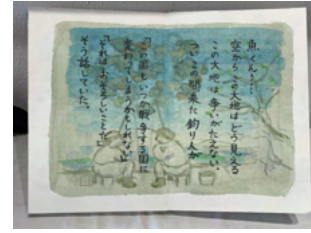 魚くん……
空からこの大地はどう見える
この大地は争いがたえない。
つい この間来た釣り人が
「この国もいつか戦争する国に
変わってしまうかもしれない」
「それはおそろしいことだ」
そう話していた。